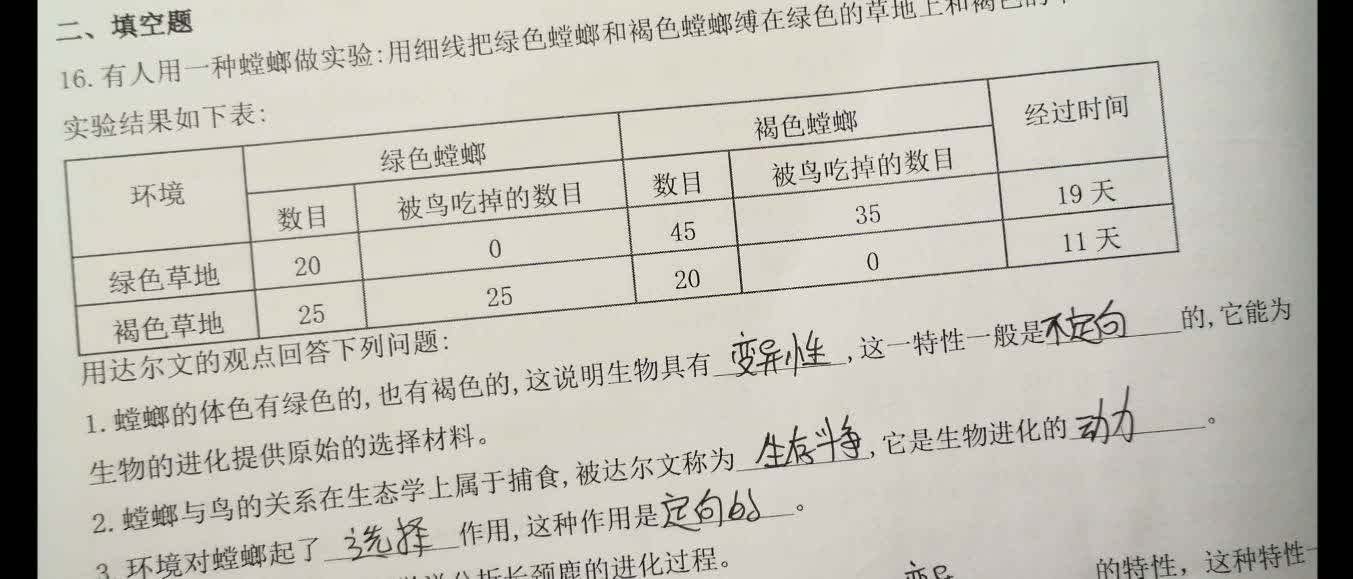 二、填空题
16.有人用一种螳螂做实验:用细线把绿色螳螂和褐色螳螂缚在绿色的草地上和褐色的
实验结果如下表:
环境 绿色螳螂 褐色螳螂 经过时间
数目 被鸟吃掉的数目 数目 被鸟吃掉的数目
绿色草地 20 0 45 35 19天
褐色草地 25 25 20 0 11天
用达尔文的观点回答下列问题:
1.螳螂的体色有绿色的,也有褐色的,这说明生物具有变异性,这一特性一般是不定向的,它能为
生物的进化提供原始的选择材料。
2.螳螂与鸟的关系在生态学上属于捕食,被达尔文称为生存斗争,它是生物进化的动力。
3.环境对螳螂起了选择作用,这种作用是定向的。
分析长颈鹿的进化过程。
变异的特性，这种特性一